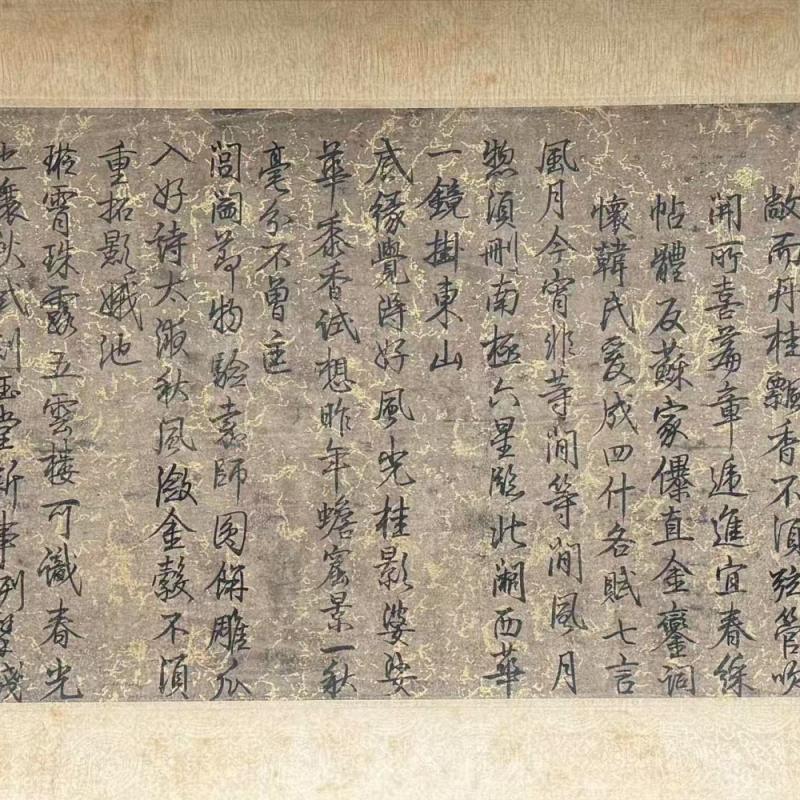 敞而丹桂飄香不須弦管吹
開所喜篇章遞進宜春綵
帖體反蘇家儤直金鑾詞
懷韓氏爰成四什各賦七言
風月今宵非等閒等閒風月
惣須刪南極六星臨北闕西華
一鏡掛東山
底緣覺得好風光桂影婆娑
華黍香試想昨年蟾窟景一秋
毫分不曾
閶闔節物驗嘉師圓餅雕瓜
入好詩太液秋風激金縠不須
重拓影娥池
璿霄珠露五雲樓可識春光
也讓秋試到玉堂新事列